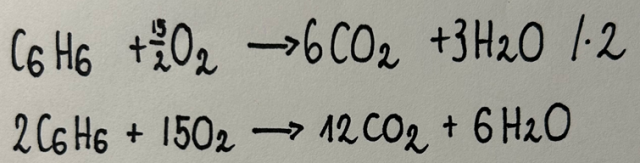 C₆H₆ + 15/2 O₂ → 6CO₂ + 3H₂O /·2
2C₆H₆ + 15O₂ → 12CO₂ + 6H₂O